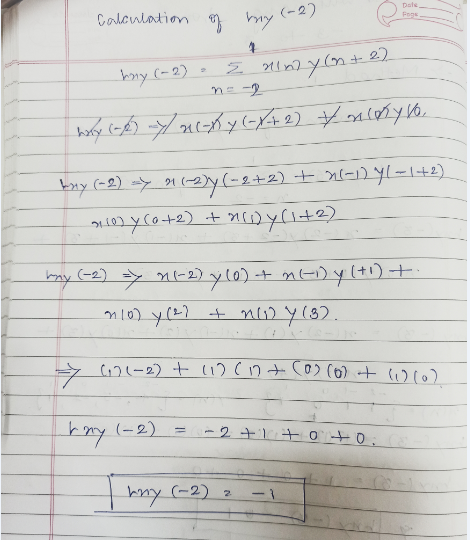 Date
Page
Calculation of rxy (-2)
1
rxy (-2) = Σ x(n) y(n+2)
n = -2
rxy (-2) ⇒ x(-2)y(-2+2) + x(-1) y(-1+2)
x(0) y(0+2) + x(1) y(1+2)
rxy (-2) ⇒ x(-2) y(0) + x(-1) y(+1) +
x(0) y(2) + x(1) y(3).
⇒ (1)(-2) + (1)(1) + (0)(0) + (1)(0)
rxy (-2) = -2 + 1 + 0 + 0.
rxy (-2) = -1